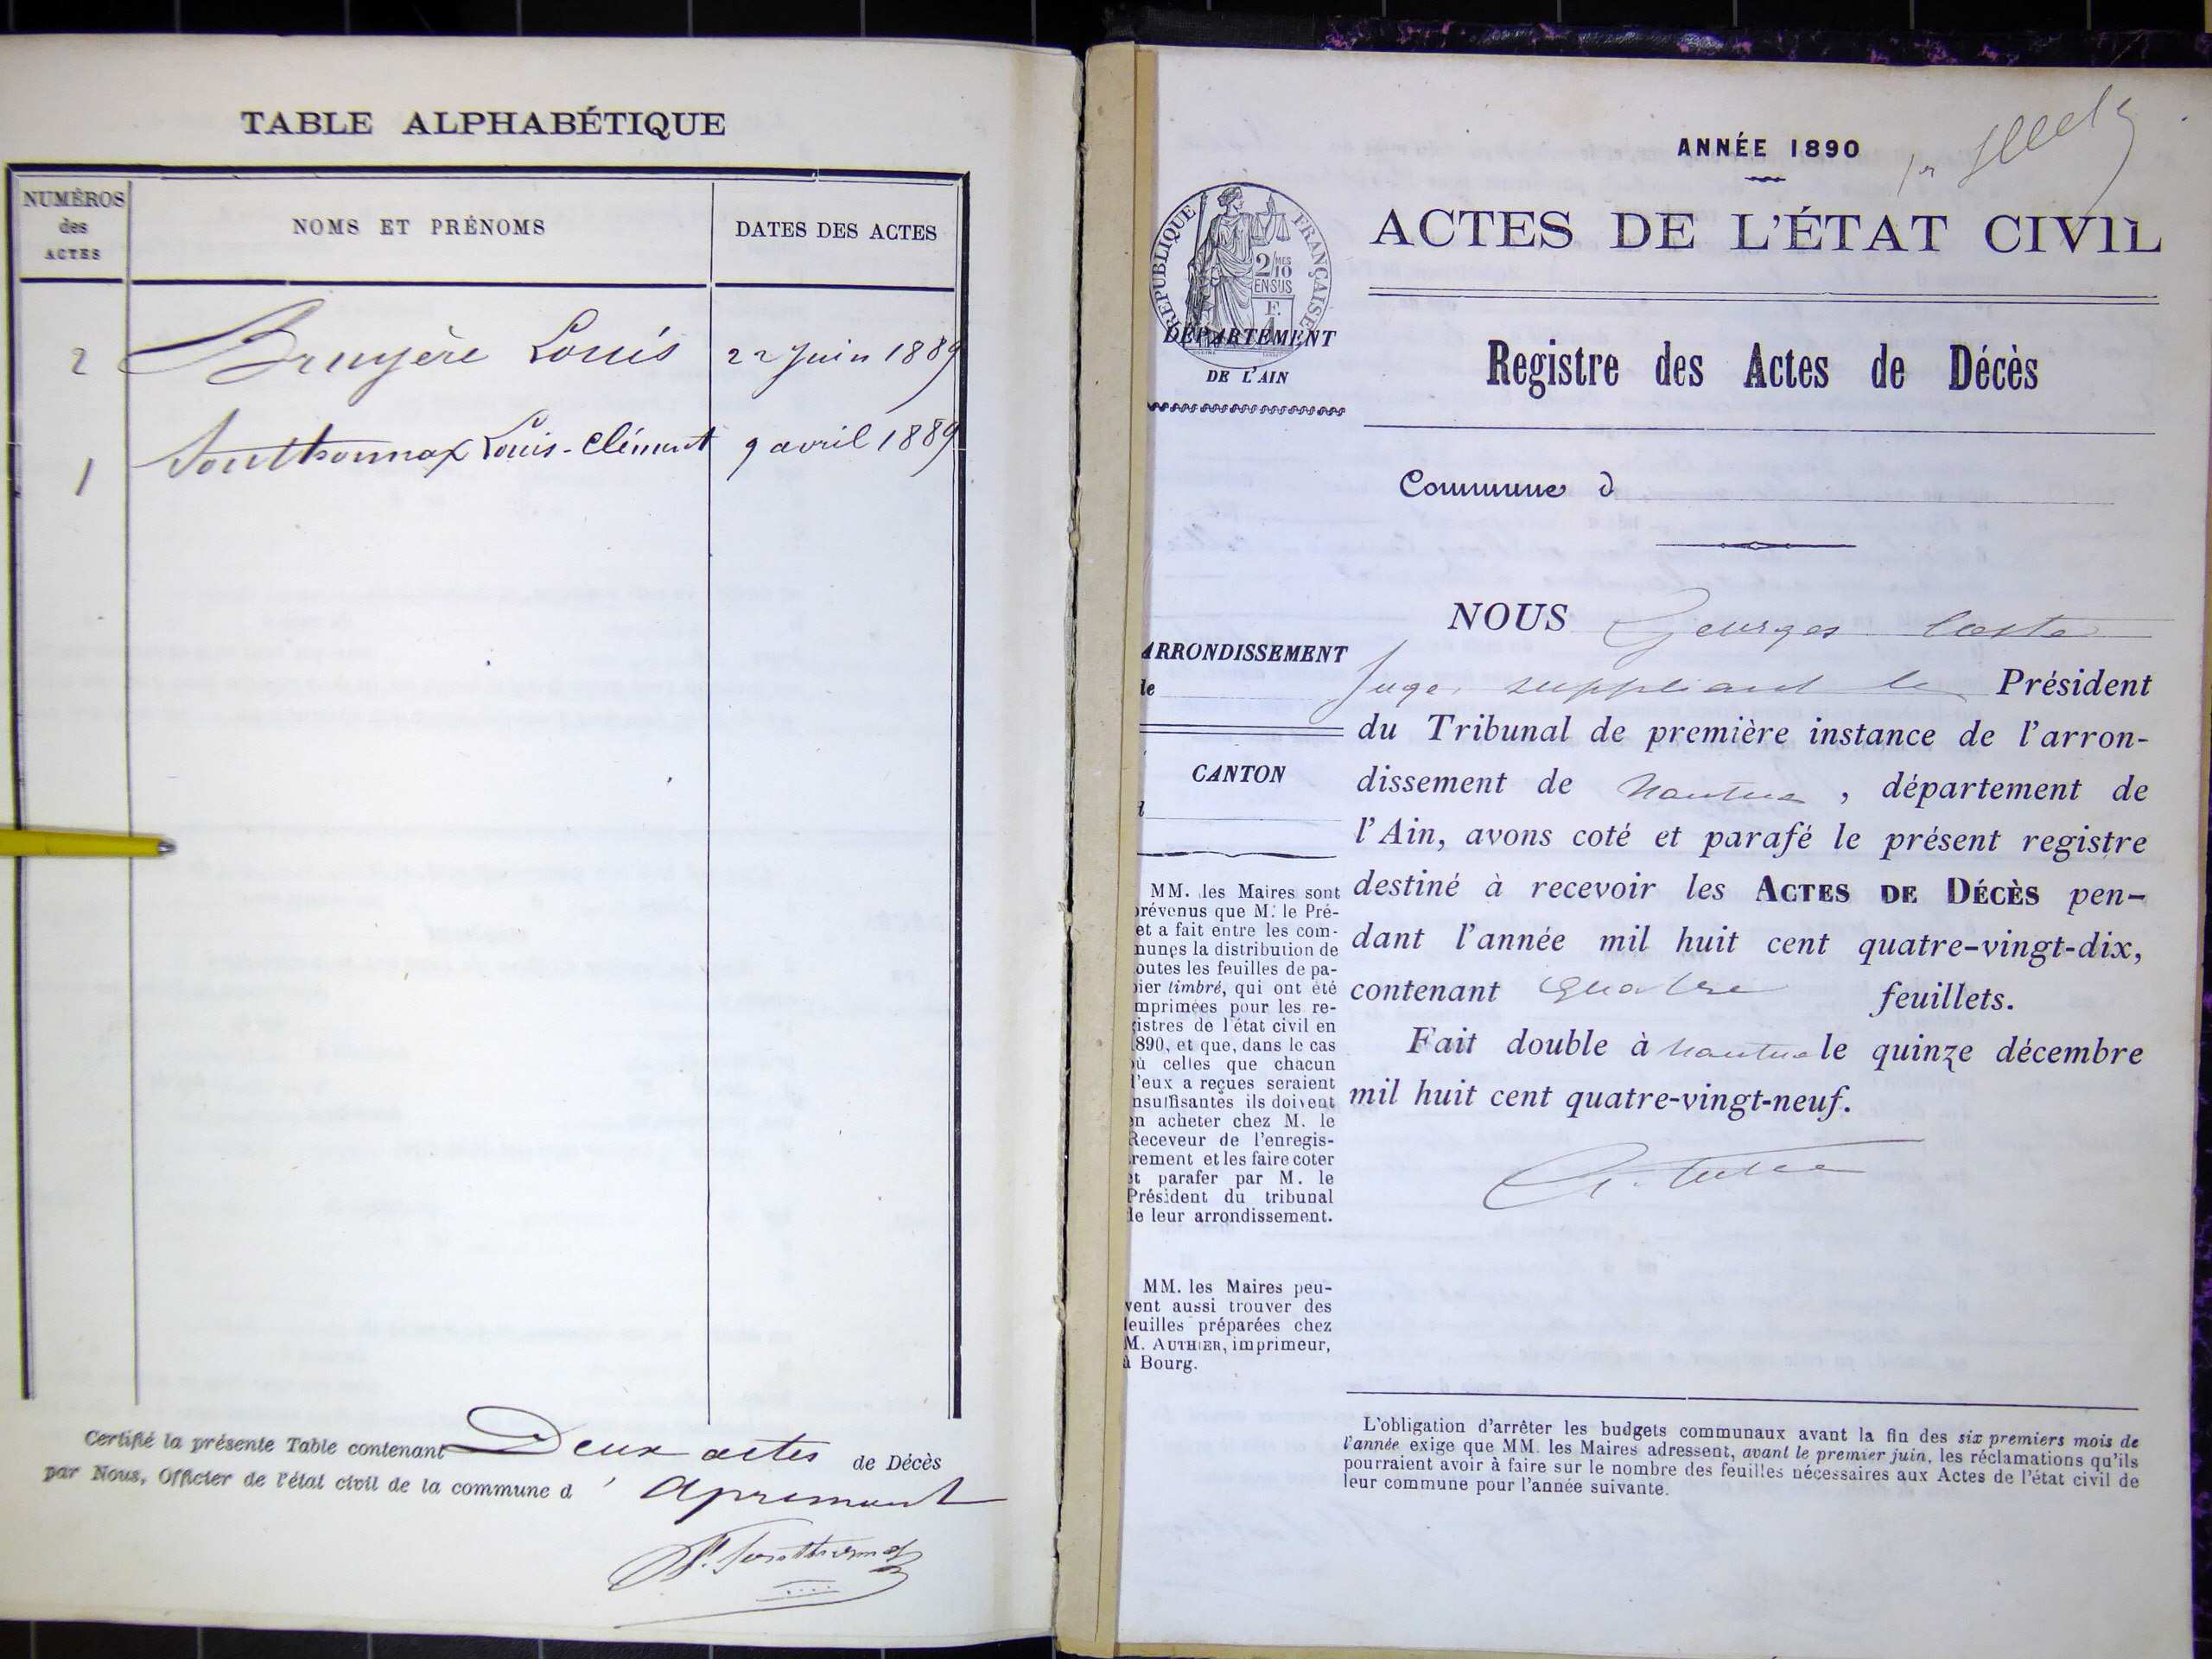 TABLE ALPHABÉTIQUE
NUMÉROS
des
ACTES
NOMS ET PRÉNOMS
DATES DES ACTES
2 Bruyère Louis 22 Juin 1889
1 Sonthonnax Louis-Clément 9 avril 1889
Certifié la présente Table contenant Deux actes de Décès
par Nous, Officier de l'état civil de la commune d'Apremont
Sonthonnax
ANNÉE 1890
1er
ACTES DE L'ÉTAT CIVIL
RÉPUBLIQUE FRANÇAISE
2/10
MES
EN SUS
F.
1
DÉPARTEMENT
DE L'AIN
Registre des Actes de Décès
Commune d
NOUS Georges
ARRONDISSEMENT
de
Juge suppléant le Président
du Tribunal de première instance de l'arron-
CANTON
d
dissement de Nantua, département de
l'Ain, avons coté et parafé le présent registre
destiné à recevoir les ACTES DE DÉCÈS pen-
dant l'année mil huit cent quatre-vingt-dix,
contenant quatre feuillets.
Fait double à Nantua le quinze décembre
mil huit cent quatre-vingt-neuf.
MM. les Maires sont
prévenus que M. le Pré-
et a fait entre les com-
munes la distribution de
outes les feuilles de pa-
pier timbré, qui ont été
mprimées pour les re-
gistres de l'état civil en
890, et que, dans le cas
où celles que chacun
d'eux a reçues seraient
nsuffisantes ils doivent
en acheter chez M. le
Receveur de l'enregis-
trement et les faire coter
et parafer par M. le
Président du tribunal
de leur arrondissement.
MM. les Maires peu-
vent aussi trouver des
feuilles préparées chez
M. AUTHIER, imprimeur,
à Bourg.
L'obligation d'arrêter les budgets communaux avant la fin des six premiers mois de
l'année exige que MM. les Maires adressent, avant le premier juin, les réclamations qu'ils
pourraient avoir à faire sur le nombre des feuilles nécessaires aux Actes de l'état civil de
leur commune pour l'année suivante.